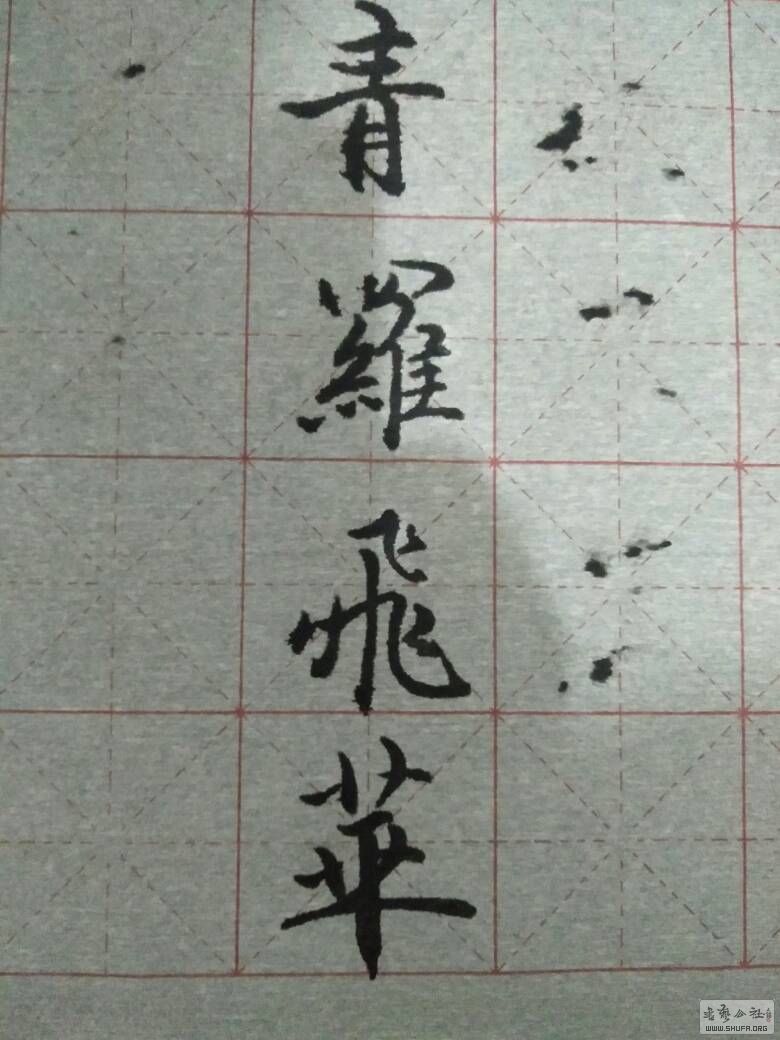 青羅飛華
書藝公社
WWW.SHUFA.ORG